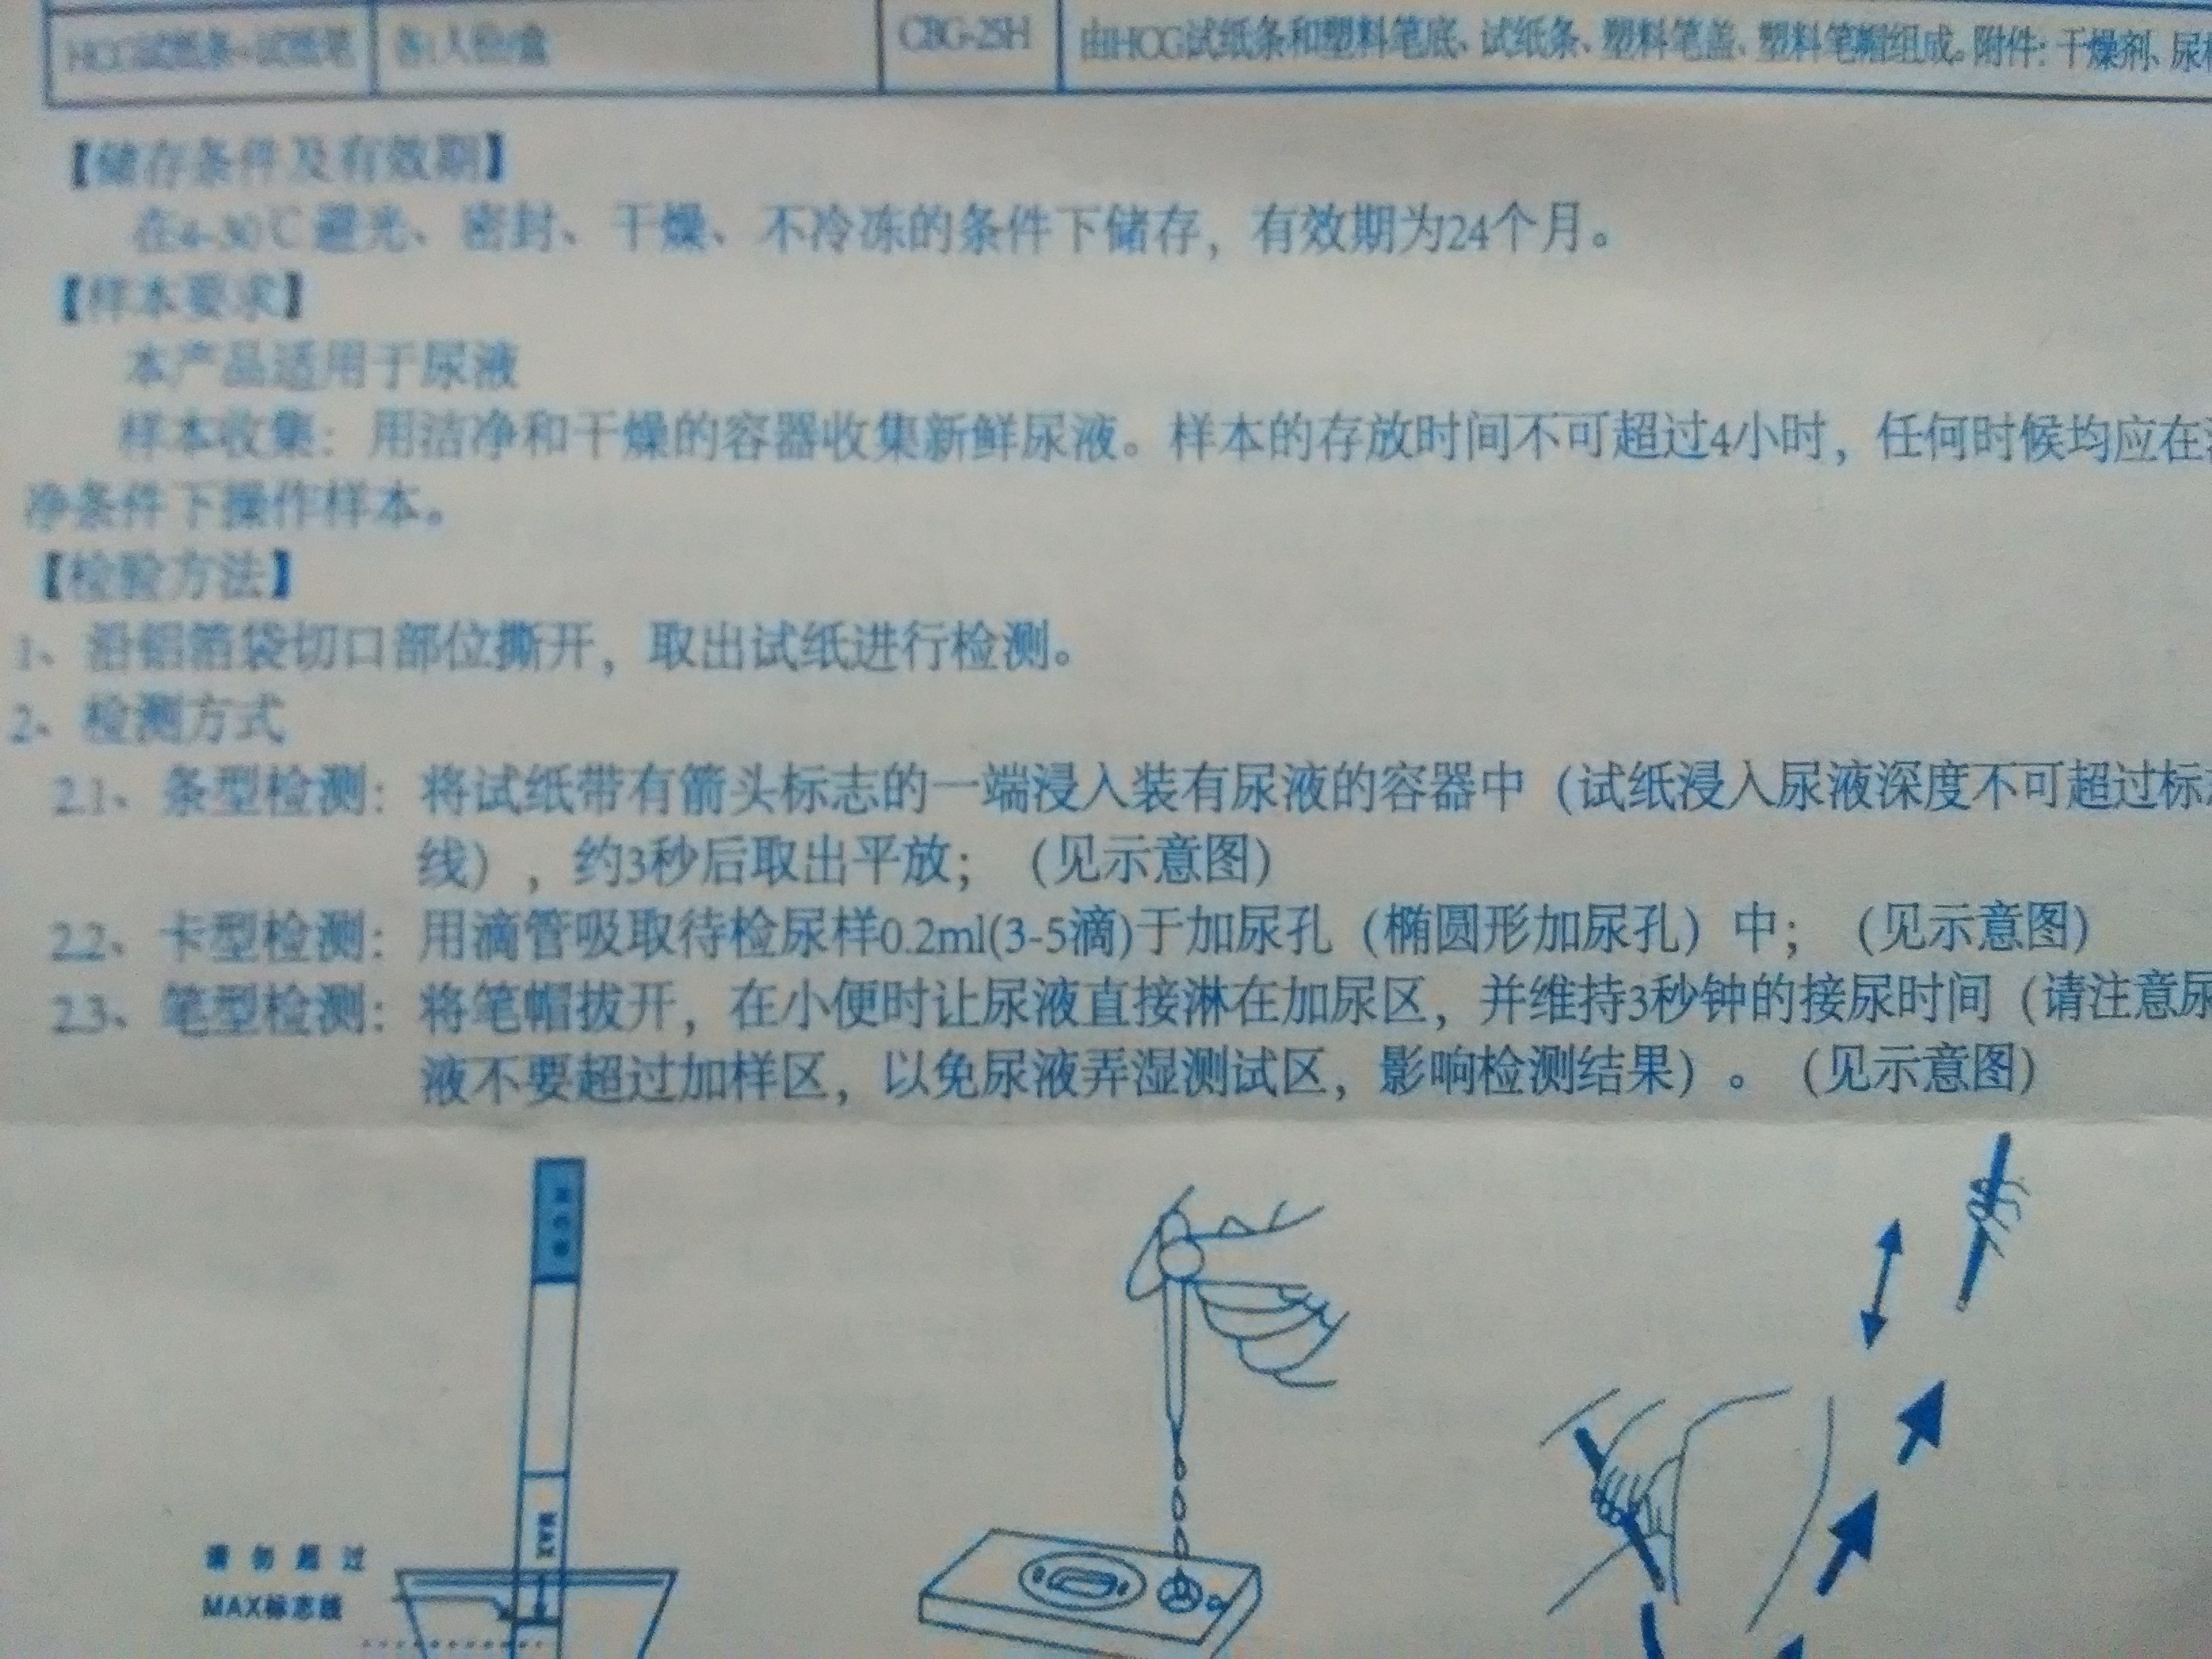 HCG试纸条+试纸笔 各1人份/盒 CBG-2SH 由HCG试纸条和塑料笔底、试纸条、塑料笔盖、塑料笔帽组成。附件：干燥剂、尿
【储存条件及有效期】
在4-30℃避光、密封、干燥、不冷冻的条件下储存，有效期为24个月。
【样本要求】
本产品适用于尿液
样本收集：用洁净和干燥的容器收集新鲜尿液。样本的存放时间不可超过4小时，任何时候均应在
净条件下操作样本。
【检验方法】
1、沿铝箔袋切口部位撕开，取出试纸进行检测。
2、检测方式
2.1、条型检测：将试纸带有箭头标志的一端浸入装有尿液的容器中（试纸浸入尿液深度不可超过标
线），约3秒后取出平放；（见示意图）
2.2、卡型检测：用滴管吸取待检尿样0.2ml(3-5滴)于加尿孔（椭圆形加尿孔）中；（见示意图）
2.3、笔型检测：将笔帽拔开，在小便时让尿液直接淋在加尿区，并维持3秒钟的接尿时间（请注意尿
液不要超过加样区，以免尿液弄湿测试区，影响检测结果）。（见示意图）
MAX
请勿超过
MAX标志线